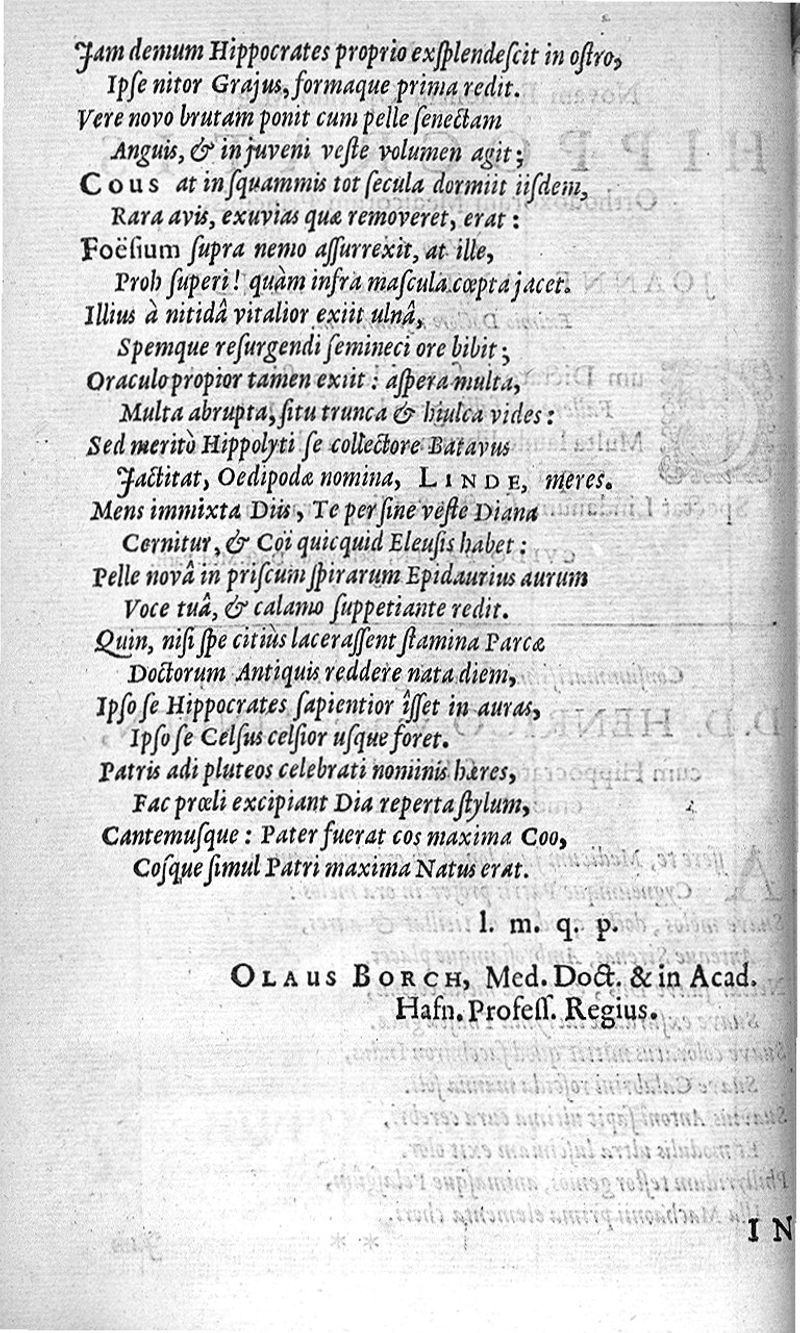 Jam demum Hippocrates proprio exſplendeſcit in oſtro,
Ipſe nitor Grajus, formaque prima redit.
Vere novo brutam ponit cum pelle ſenectam
Anguis, & in juveni veſte volumen agit;
COUS at in ſquammis tot ſecula dormiit iiſdem,
Rara avis, exuvias quæ removeret, erat:
Foëſium ſupra nemo aſſurrexit, at ille,
Proh ſuperi! quàm infra maſcula cœpta jacet.
Illius à nitidâ vitalior exiit ulnâ,
Spemque reſurgendi ſemineci ore bibit;
Oraculo propior tamen exiit: aſpera multa,
Multa abrupta, ſitu trunca & hiulca vides:
Sed meritò Hippolyti ſe collectore Batavus
Jactitat, Oedipodæ nomina, LINDE, meres.
Mens immixta Diis, Te per ſine veſte Diana
Cernitur, & Coï quicquid Eleuſis habet:
Pelle novâ in priſcum ſpirarum Epidaurius aurum
Voce tuâ, & calamo ſuppetiante redit.
Quin, niſi ſpe citiùs laceraſſent ſtamina Parcæ
Doctorum Antiquis reddere nata diem,
Ipſo ſe Hippocrates ſapientior îſſet in auras,
Ipſo ſe Celſus celſior uſque foret.
Patris adi pluteos celebrati nominis hæres,
Fac prœli excipiant Dia reperta ſtylum,
Cantemuſque: Pater fuerat cos maxima Coo,
Coſque ſimul Patri maxima Natus erat.
l. m. q. p.
OLAUS BORCH, Med. Doct. & in Acad.
Hafn. Profeſſ. Regius.
IN